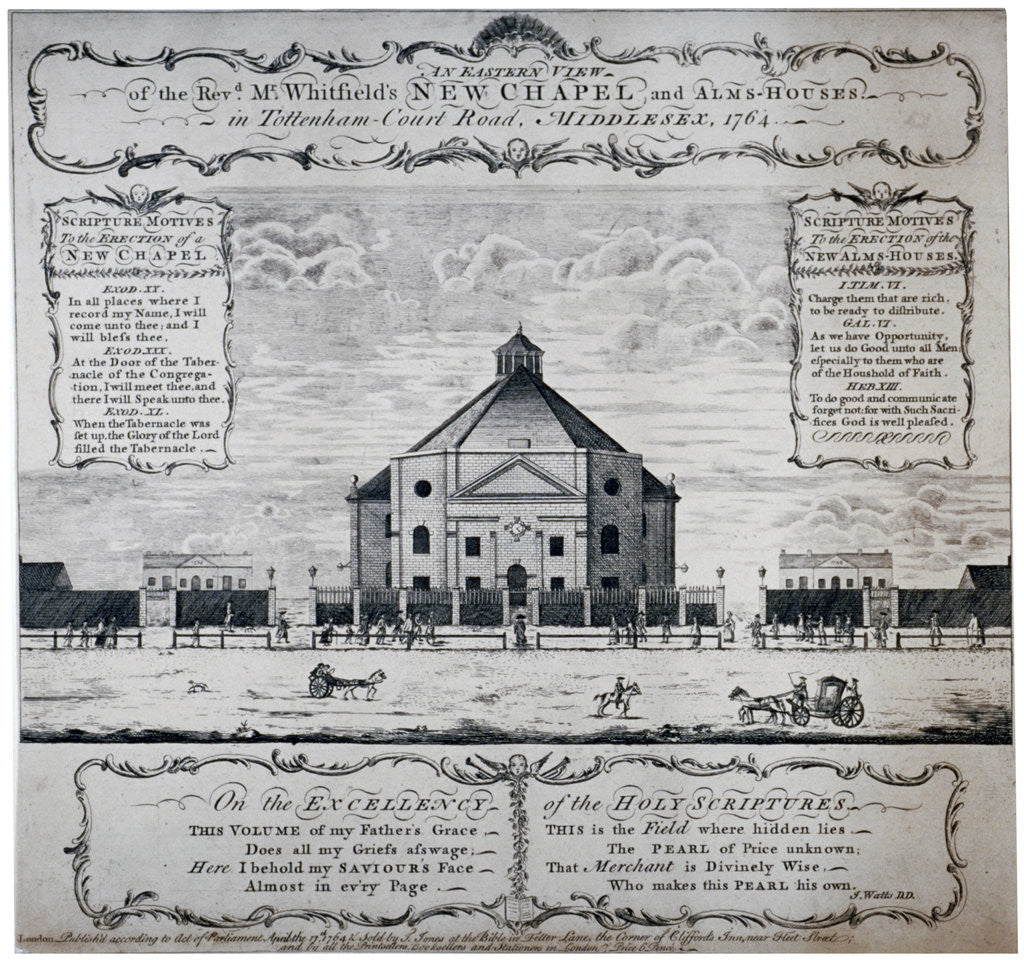 AN EASTERN VIEW
of the Revd. Mr. Whitfield's NEW CHAPEL and ALMS-HOUSES.
in Tottenham-Court Road, MIDDLESEX, 1764.
SCRIPTURE MOTIVES
To the ERECTION of a
NEW CHAPEL.
EXOD. XX.
In all places where I
record my Name, I will
come unto thee; and I
will bleſs thee.
EXOD. XXX.
At the Door of the Taber-
nacle of the Congrega-
tion, I will meet thee, and
there I will Speak unto thee.
EXOD. XL.
When the Tabernacle was
ſet up, the Glory of the Lord
filled the Tabernacle.
SCRIPTURE MOTIVES
To the ERECTION of the
NEW ALMS-HOUSES.
I. TIM. VI.
Charge them that are rich,
to be ready to diſtribute.
GAL. VI.
As we have Opportunity,
let us do Good unto all Men;
eſpecially to them who are
of the Houshold of Faith.
HEB. XIII.
To do good and communicate
forget not: for with Such Sacri-
fices God is well pleaſed.
On the EXCELLENCY of the HOLY SCRIPTURES.
THIS VOLUME of my Father's Grace,
Does all my Griefs aſswage;
Here I behold my SAVIOUR'S Face
Almost in ev'ry Page.
THIS is the Field where hidden lies
The PEARL of Price unknown;
That Merchant is Divinely Wise,
Who makes this PEARL his own.
J. Watts D.D.
London Publish'd according to Act of Parliament April the 17th. 1764 & Sold by J. Jones at the Bible in Fetter Lane, the Corner of Cliffords Inn, near Fleet Street;
and by all the Printsellers, Booksellers and Stationers in London. Price 6 Pence.